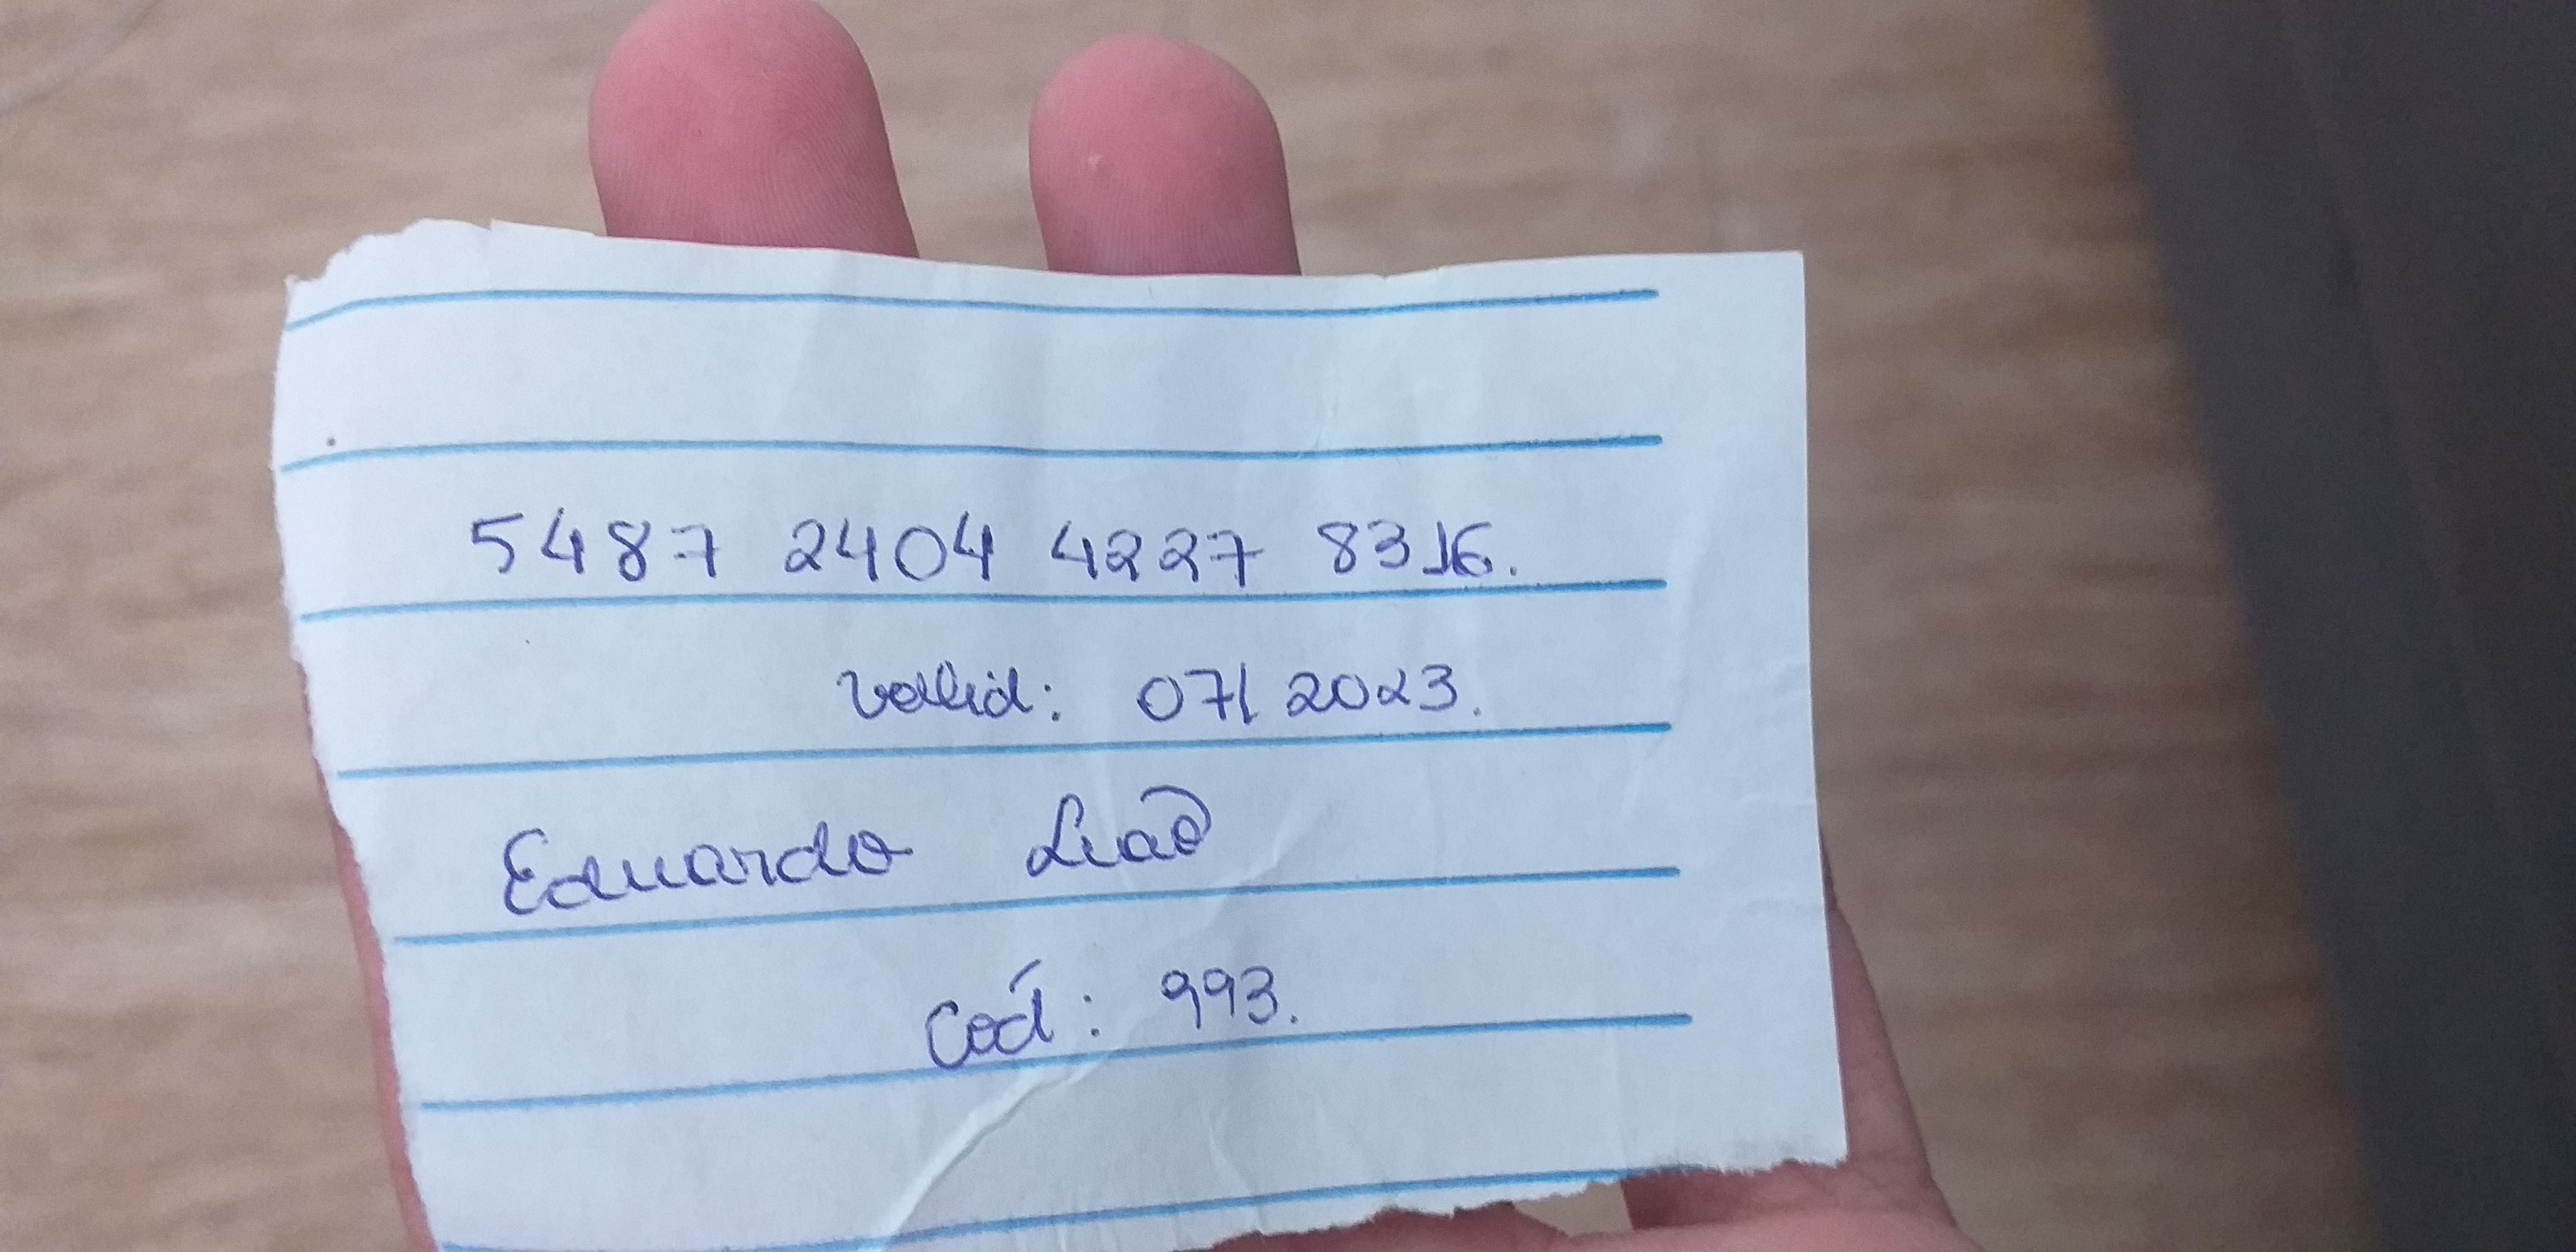 5487 2404 4227 8316.
valid: 07/2023.
Eduardo Leão
Cód: 993.